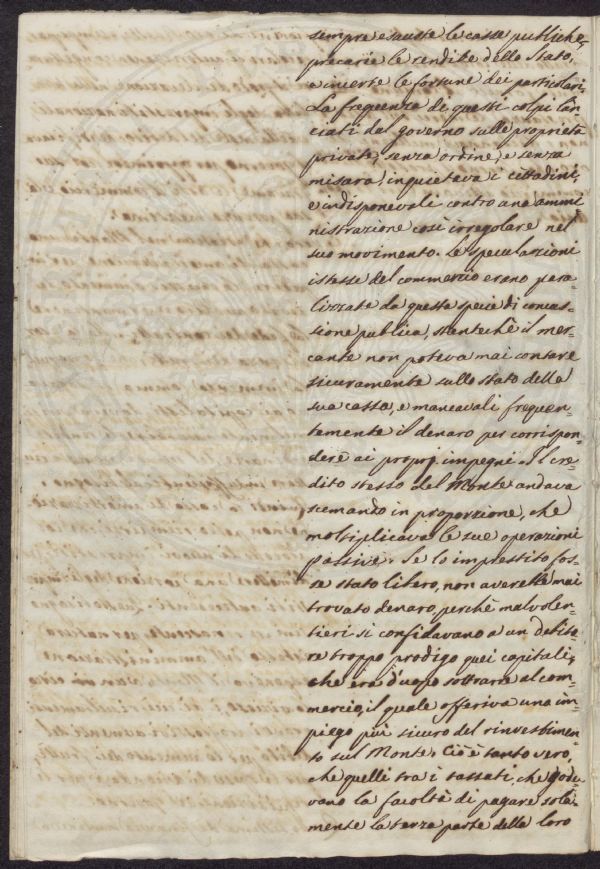 sempre esauste le casse publiche,
precarie le rendite dello Stato,
e incerte le fortune dei particolari.
La frequenza di questi colpi lan-
ciati dal governo sulle proprietà
private, senza ordine, e senza
misura, inquietava i cittadini,
e indisponevali contro una ammi
nistrazione così irregolare nel
suo movimento. Le speculazioni
istesse del commercio erano para
lizzate da questa specie di concus-
sione publica, stantechè il mer-
cante non poteva mai contare
sicuramente sullo stato della
sua cassa, e mancavali frequen-
temente il denaro per corrispon-
dere ai proprj impegni. Il cre-
dito stesso del Monte andava
scemando in proporzione, che
moltiplicava le sue operazioni
passive. Se lo imprestito fos-
se stato libero, non averebbe mai
trovato denaro, perchè malvolen-
tieri si confidavano a un debito
re troppo prodigo quei capitali,
che era d'uopo sottrarre al com-
mercio, il quale offeriva una im-
piego più sicuro del rinvestimen-
to sul Monte. Ciò è tanto vero,
che quelli tra i tassati, che gode-
vano la facoltà di pagare sola-
mente la terza parte della loro